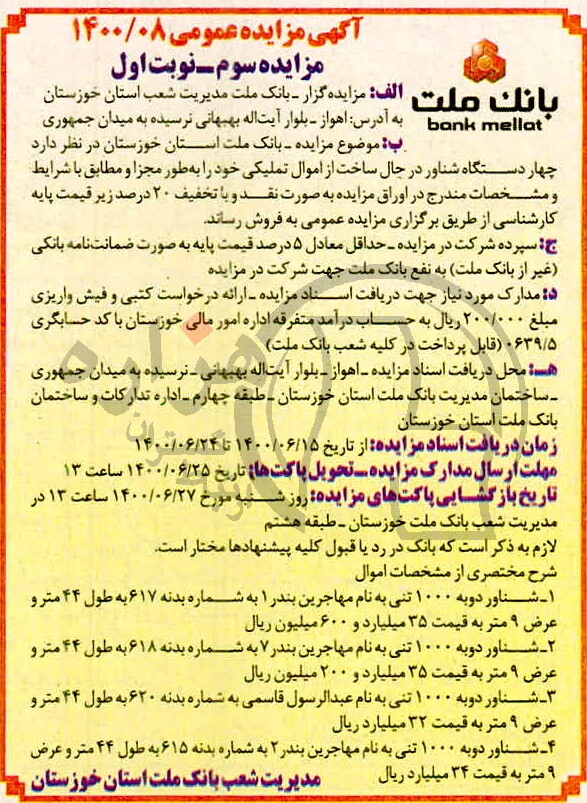 آگهی مزایده عمومی ۱۴۰۰/۰۸
مزایده سوم ــ نوبت اول
بانک ملت
bank mellat
الف: مزایده‌گزار ـ بانک ملت مدیریت شعب استان خوزستان
به آدرس: اهواز ـ بلوار آیت‌اله بهبهانی نرسیده به میدان جمهوری
ب: موضوع مزایده ـ بانک ملت استان خوزستان در نظر دارد
چهار دستگاه شناور در حال ساخت از اموال تملیکی خود را به‌طور مجزا و مطابق با شرایط
و مشخصات مندرج در اوراق مزایده به صورت نقد و با تخفیف ۲۰ درصد زیر قیمت پایه
کارشناسی از طریق برگزاری مزایده عمومی به فروش رساند.
ج: سپرده شرکت در مزایده ـ حداقل معادل ۵ درصد قیمت پایه به صورت ضمانت‌نامه بانکی
(غیر از بانک ملت) به نفع بانک ملت جهت شرکت در مزایده
د: مدارک مورد نیاز جهت دریافت اسناد مزایده ـ ارائه درخواست کتبی و فیش واریزی
مبلغ ۲۰۰/۰۰۰ ریال به حساب درآمد متفرقه اداره امور مالی خوزستان با کد حسابگری
۰۶۳۹/۵ (قابل پرداخت در کلیه شعب بانک ملت)
هـ: محل دریافت اسناد مزایده ـ اهواز ـ بلوار آیت‌اله بهبهانی ـ نرسیده به میدان جمهوری
ـ ساختمان مدیریت بانک ملت استان خوزستان ـ طبقه چهارم ـ اداره تدارکات و ساختمان
بانک ملت استان خوزستان
زمان دریافت اسناد مزایده: از تاریخ ۱۴۰۰/۰۶/۱۵ تا ۱۴۰۰/۰۶/۲۴
مهلت ارسال مدارک مزایده ــ تحویل پاکت‌ها: تاریخ ۱۴۰۰/۰۶/۲۵ ساعت ۱۳
تاریخ بازگشایی پاکت‌های مزایده: روز شنبه مورخ ۱۴۰۰/۰۶/۲۷ ساعت ۱۳ در
مدیریت شعب بانک ملت خوزستان ـ طبقه هشتم
لازم به ذکر است که بانک در رد یا قبول کلیه پیشنهادها مختار است.
شرح مختصری از مشخصات اموال
۱ـ شناور دوبه ۱۰۰۰ تنی به نام مهاجرین بندر ۱ به شماره بدنه ۶۱۷ به طول ۴۴ متر و
عرض ۹ متر به قیمت ۳۵ میلیارد و ۶۰۰ میلیون ریال
۲ـ شناور دوبه ۱۰۰۰ تنی به نام مهاجرین بندر ۷ به شماره بدنه ۶۱۸ به طول ۴۴ متر و
عرض ۹ متر به قیمت ۳۵ میلیارد و ۲۰۰ میلیون ریال
۳ـ شناور دوبه ۱۰۰۰ تنی به نام عبدالرسول قاسمی به شماره بدنه ۶۲۰ به طول ۴۴ متر و
عرض ۹ متر به قیمت ۳۲ میلیارد ریال
۴ـ شناور دوبه ۱۰۰۰ تنی به نام مهاجرین بندر ۲ به شماره بدنه ۶۱۵ به طول ۴۴ متر و عرض
۹ متر به قیمت ۳۴ میلیارد ریال
مدیریت شعب بانک ملت استان خوزستان
هزاره